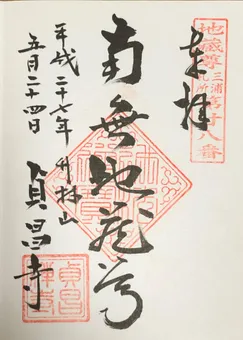 地蔵尊
三浦
第廿八番
奉拝
南無地蔵尊
平成二十七年
竹林山
五月二十四日
貞昌寺
貞昌